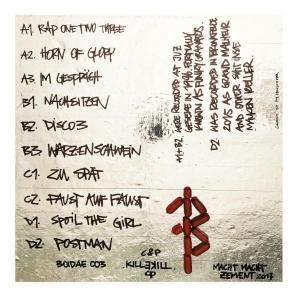 A1. RAP ONE TWO THREE
A2. HORN OF GLORY
A3. IM GESPRÄCH
B1. NACHSITZEN
B2. DISCO3
B3. WARZENSCHWEIN
C1. ZU SPÄT
C2. FAUST AUF FAUST
D1. SPOIL THE GIRL
D2. POSTMAN
BOIDAE 003
C&P
KILLEKILL
MACHT MACHT
ZEMENT 2017
A1+B2 WERE RECORDED AT JUZ
D2 WAS RECORDED IN
2015 AS
AND OTHER SHIT INSE
KELLER.